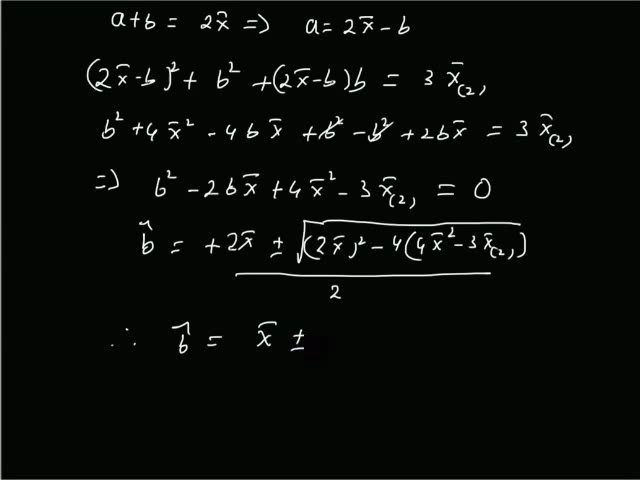 a+b = 2x̄ => a = 2x̄ - b
(2x̄-b)² + b² + (2x̄-b)b = 3 x̄₍₂₎
b² + 4x̄² - 4bx̄ + b² - b² + 2bx̄ = 3 x̄₍₂₎
=> b² - 2bx̄ + 4x̄² - 3x̄₍₂₎ = 0
b̂ = +2x̄ ± √((2x̄)² - 4(4x̄² - 3x̄₍₂₎))
2
∴ b̂ = x̄ ±